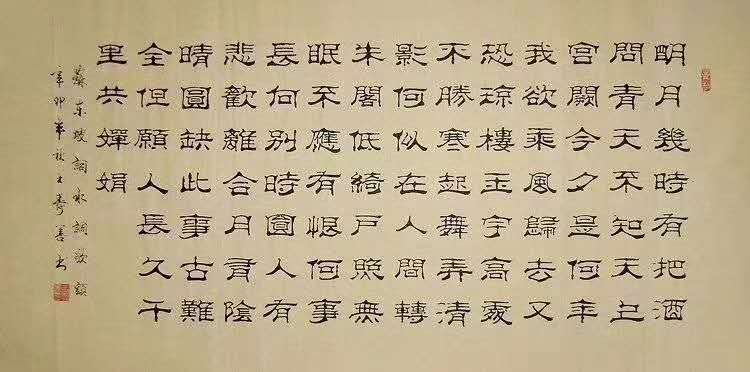 明月幾時有把酒
問青天不知天上
宮闕今夕是何年
我欲乘風歸去又
恐琼樓玉宇高處
不勝寒起舞弄清
影何似在人間轉
朱閣低綺戶照無
眠不應有恨何事
長何別時圓人有
悲歡離合月有陰
晴圓缺此事古難
全但願人長久千
里共嬋娟
蘇東坡詞水調歌頭
辛卯年